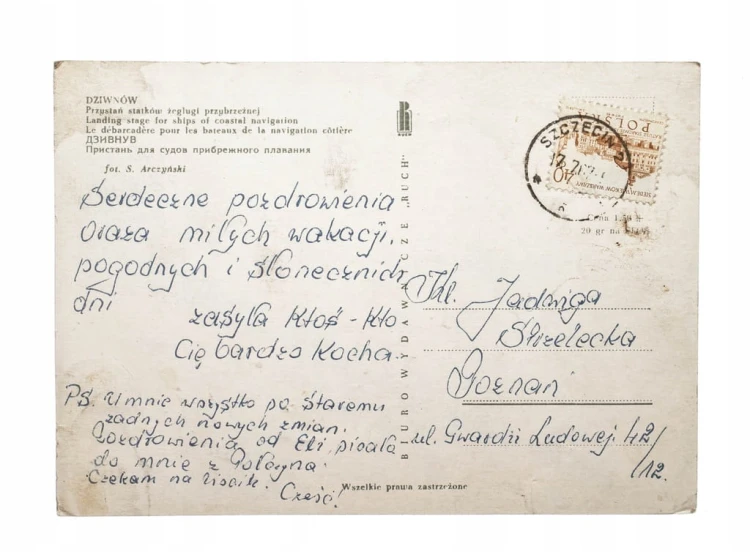 DZIWNÓW
Przystań statków żeglugi przybrzeżnej
Landing stage for ships of coastal navigation
Le débarcadère pour les bateaux de la navigation côtière
ДЗИВНУВ
Пристань для судов прибрежного плавания
fot. S. Arczyński
RUCH
BIURO WYDAWNICZE „RUCH"
SZCZECIN 2
POLSKA
40
Cena 1,50 zł
20 gr na
Serdeczne pozdrowienia
oraza miłych wakacji,
pogodnych i słonecznich
dni
zasyła Ktoś-Kto
Cię bardzo Kocha.
PS. U mnie wszystko po staremu
żadnych nowych zmian.
Pozdrowienia od Eli, pisała
do mnie z
Czekam na liścik. Cześć!
Kl. Jadwiga
Strzelecka
Poznań
ul. Gwardzi Ludowej 42/
/12.
Wszelkie prawa zastrzeżone